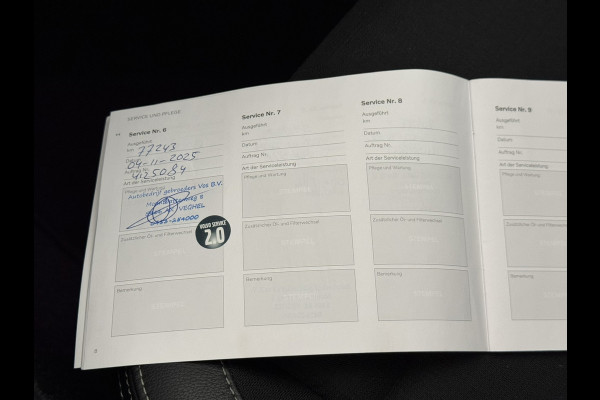 SERVICE UND PFLEGE
Service Nr. 6
Ausgeführt
km 77243
Datum 04-11-2025
Auftrag Nr. 4125084
Art der Serviceleistung
Pflege und Wartung
Autobedrijf gebroeders Vos B.V.
VEGHEL
VOLVO SERVICE
2.0
Zusätzlicher Öl- und Filterwechsel
Bemerkung
Service Nr. 7
Ausgeführt
km
Datum
Auftrag Nr.
Art der Serviceleistung
Pflege und Wartung
Zusätzlicher Öl- und Filterwechsel
Bemerkung
Service Nr. 8
Ausgeführt
km
Datum
Auftrag Nr.
Art der Serviceleistung
Pflege und Wartung
Zusätzlicher Öl- und Filterwechsel
Bemerkung
Service Nr. 9
Ausgeführt
km
Datum
Auftrag Nr.
Art der Serviceleistung
Pflege und Wartung
Zusätzlicher Öl- und Filterwechsel
Bemerkung